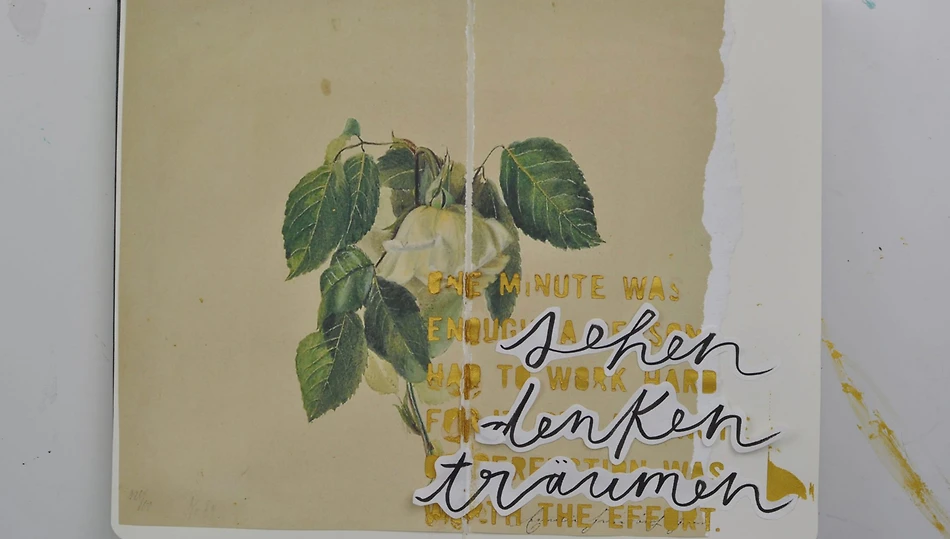 ONE MINUTE WAS
ENOUGH A PERSON
sehen
HAD TO WORK HARD
denken
FOR
PERFECTION WAS
träumen
WORTH THE EFFORT.